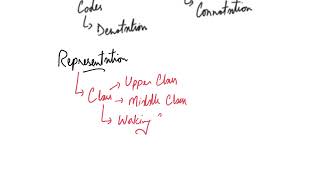 Codes
↳ Denotation
↳ Connotation
Representation
↳ Class → Upper Class
→ Middle Class
↳ Working "